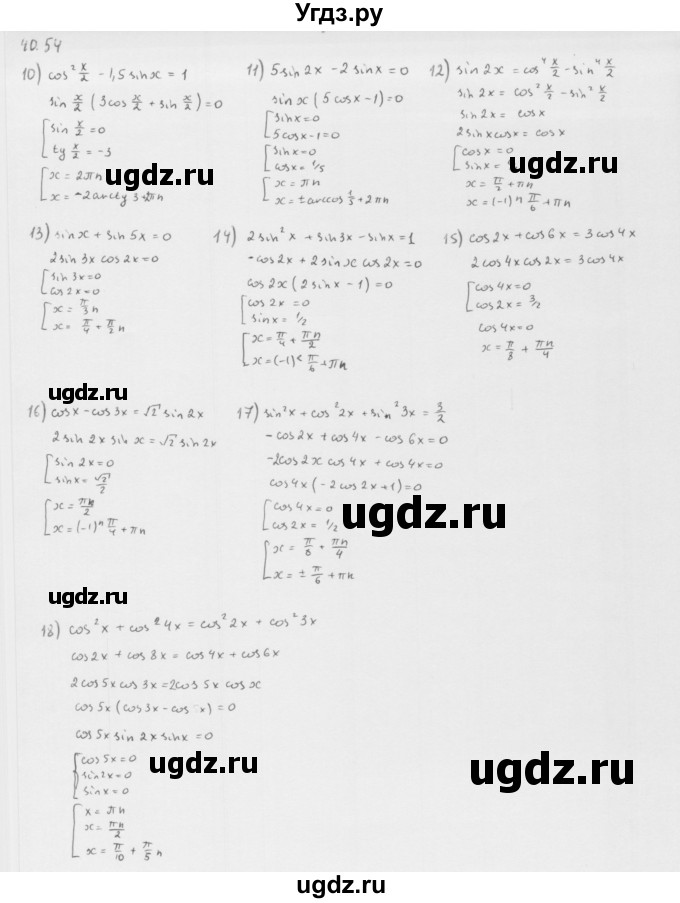 Угдз.ру
40.54
10) cos² x/2 - 1,5 sinx = 1
sin x/2 (3cos x/2 + sin x/2) = 0
[ sin x/2 = 0
ty x/2 = -3
[ x = 2πn
x = -2arcty 3 + 2πn
11) 5 sin 2x - 2 sinx = 0
sinx (5 cosx - 1) = 0
[ sinx = 0
5cosx - 1 = 0
[ sinx = 0
cosx = 1/5
[ x = πn
x = ± arccos 1/5 + 2πn
12) sin 2x = cos⁴ x/2 - sin⁴ x/2
sin 2x = cos² x/2 - sin² x/2
sin 2x = cosx
2 sinx cosx = cosx
[ cosx = 0
sinx =
[ x = π/2 + πn
x = (-1)ⁿ π/6 + πn
13) sinx + sin 5x = 0
2 sin 3x cos 2x = 0
[ sin 3x = 0
cos 2x = 0
[ x = π/3 n
x = π/4 + π/2 n
14) 2 sin² x + sin 3x - sinx = 1
-cos2x + 2 sinx cos 2x = 0
cos 2x (2 sinx - 1) = 0
[ cos 2x = 0
sinx = 1/2
[ x = π/4 + πn/2
x = (-1)ⁿ π/6 + πn
15) cos 2x + cos 6x = 3 cos 4x
2 cos 4x cos 2x = 3 cos 4x
[ cos 4x = 0
cos 2x = 3/2
cos 4x = 0
x = π/8 + πn/4
16) cosx - cos 3x = √2 sin 2x
2 sin 2x sin x = √2 sin 2x
[ sin 2x = 0
sinx = √2/2
[ x = πn/2
x = (-1)ⁿ π/4 + πn
17) sin² x + cos² 2x + sin² 3x = 3/2
- cos 2x + cos 4x - cos 6x = 0
-2cos 2x cos 4x + cos 4x = 0
cos 4x (-2 cos 2x + 1) = 0
[ cos 4x = 0
cos 2x = 1/2
[ x = π/8 + πn/4
x = ± π/6 + πn
18) cos² x + cos² 4x = cos² 2x + cos² 3x
cos 2x + cos 8x = cos 4x + cos 6x
2 cos 5x cos 3x = 2 cos 5x cos x
cos 5x (cos 3x - cos x) = 0
cos 5x sin 2x sinx = 0
[ cos 5x = 0
sin 2x = 0
sin x = 0
[ x = πn
x = πn/2
x = π/10 + π/5 n
ugdz.ru
ugdz.ru
ugdz.ru
ugdz.ru
ugdz.ru
ugdz.ru
ugdz.ru
ugdz.ru
ugdz.ru